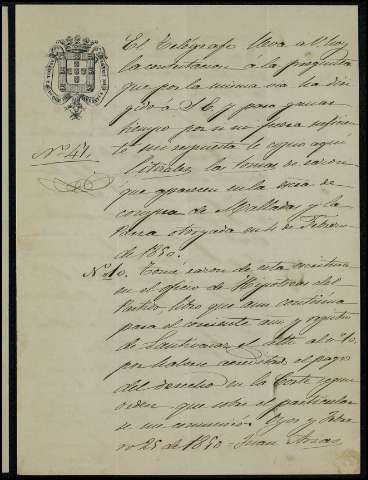 El Telégrafo lleva a V. hoy
la contestacion á la pregunta
que por la misma via ha diri
gido á S.E. y para ganar
tiempo por si no fuera suficien
te mi respuesta le copio aqui
literales, las tomas de razon
que aparecen en la escra de
compra de Moralladas y la
otorgada en 4 de Febrero
de 1850.
Nº 47.
Nº 10. Tomé razon de esta escritura
en el oficio de Hipotecas del
Partido, libro que aun continúa
para el corriente año y registro
de Santiváñez el folio al nº 10,
por haberse acreditado el pago
del derecho en la Corte segun
orden que sobre el particular
se me comunicó. Feb
ro 25 de 1850 - Juan Arias